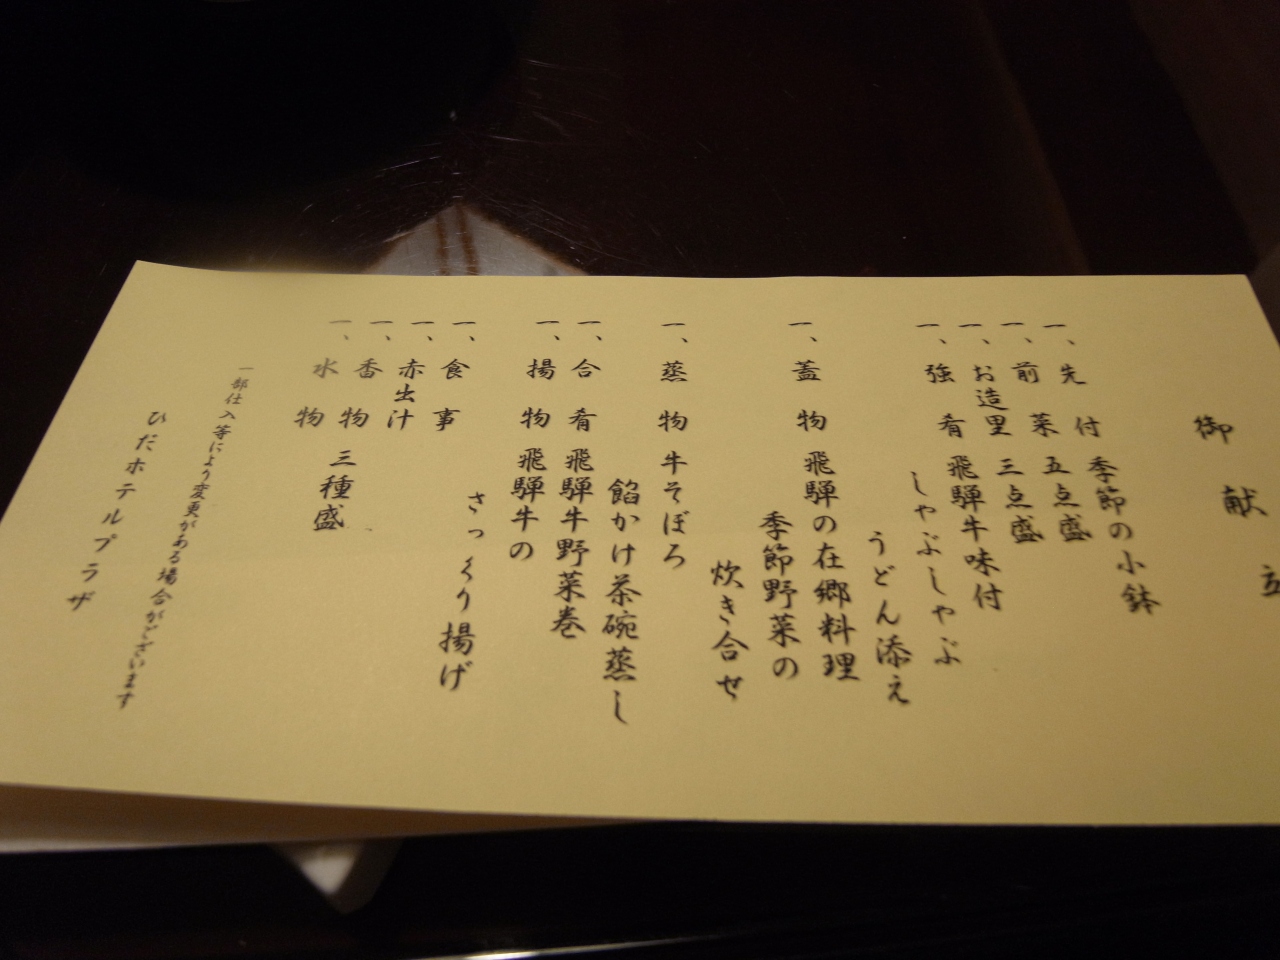 御献立
一、先付 季節の小鉢
一、前菜 五点盛
一、お造里 三点盛
一、強肴 飛騨牛味付
しゃぶしゃぶ
うどん添え
一、蓋物 飛騨の在郷料理
季節野菜の
炊き合せ
一、蒸物 牛そぼろ
餡かけ茶碗蒸し
一、合肴 飛騨牛野菜巻
一、揚物 飛騨牛の
さっくり揚げ
一、食事
一、赤出汁
一、香物 三種盛
一、水物
一部仕入等により変更がある場合がございます
ひだホテルプラザ